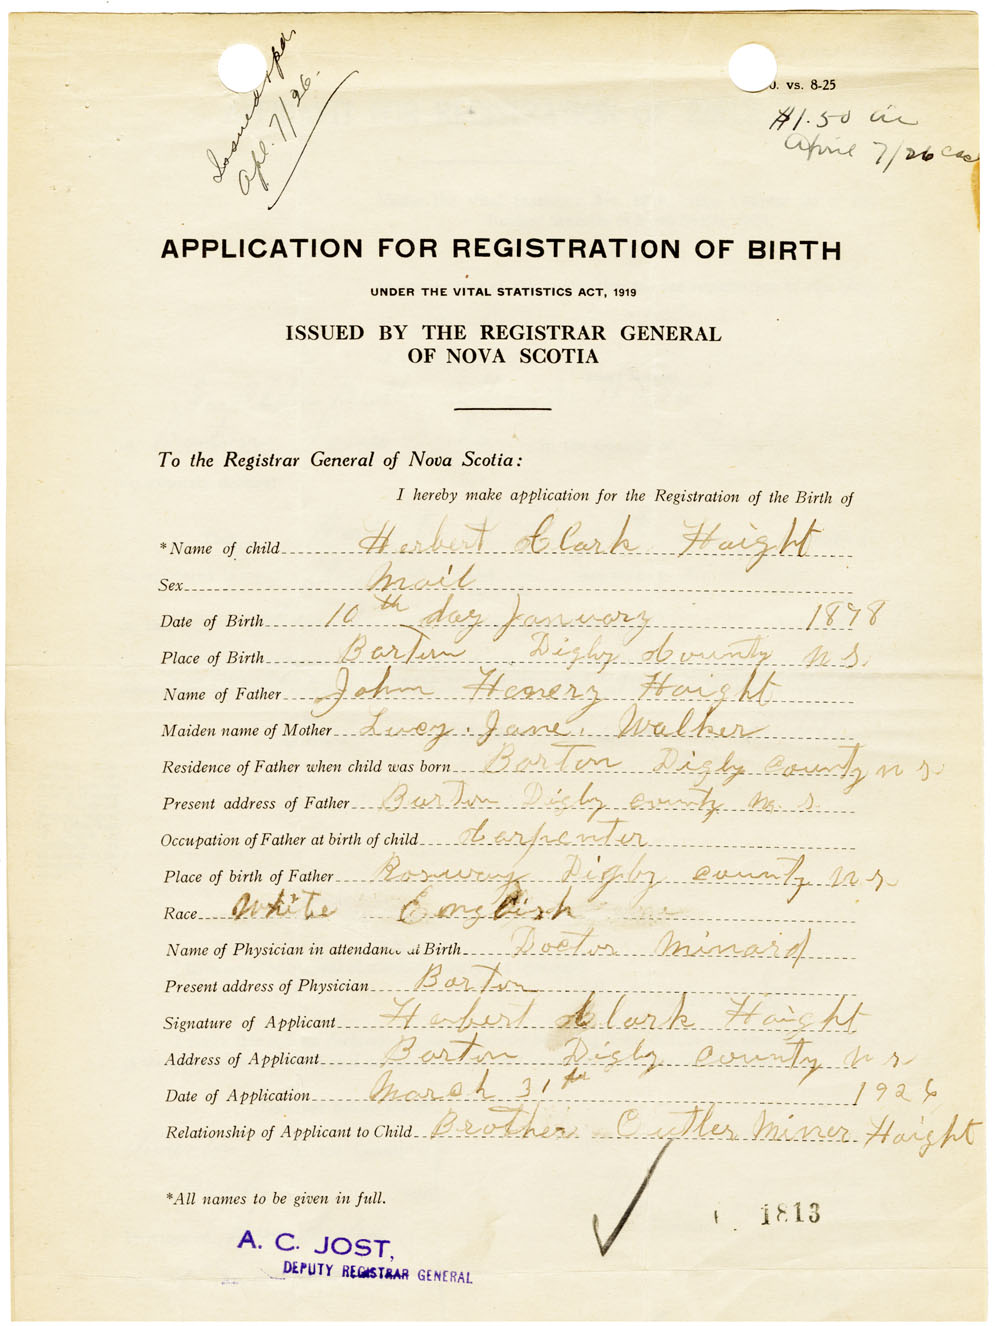 Issued
Apl. 7/26.
vs. 8-25
$1.50
April 7/26
APPLICATION FOR REGISTRATION OF BIRTH
UNDER THE VITAL STATISTICS ACT, 1919
ISSUED BY THE REGISTRAR GENERAL
OF NOVA SCOTIA
To the Registrar General of Nova Scotia:
I hereby make application for the Registration of the Birth of
*Name of child Herbert Clark Haight
Sex Mail
Date of Birth 10th day January 1878
Place of Birth Barton Digby County N S.
Name of Father John Henery Haight
Maiden name of Mother Lucy. Jane. Walker
Residence of Father when child was born Barton Digby county n s.
Present address of Father Barton Digby county n. s.
Occupation of Father at birth of child Carpenter
Place of birth of Father Rosway Digby county n s
Race White English
Name of Physician in attendance at Birth Doctor Minard
Present address of Physician Barton
Signature of Applicant Herbert Clark Haight
Address of Applicant Barton Digby county n s
Date of Application March 31th 1926
Relationship of Applicant to Child Brother Cutler Miner Haight
*All names to be given in full.
1813
A. C. JOST,
DEPUTY REGISTRAR GENERAL